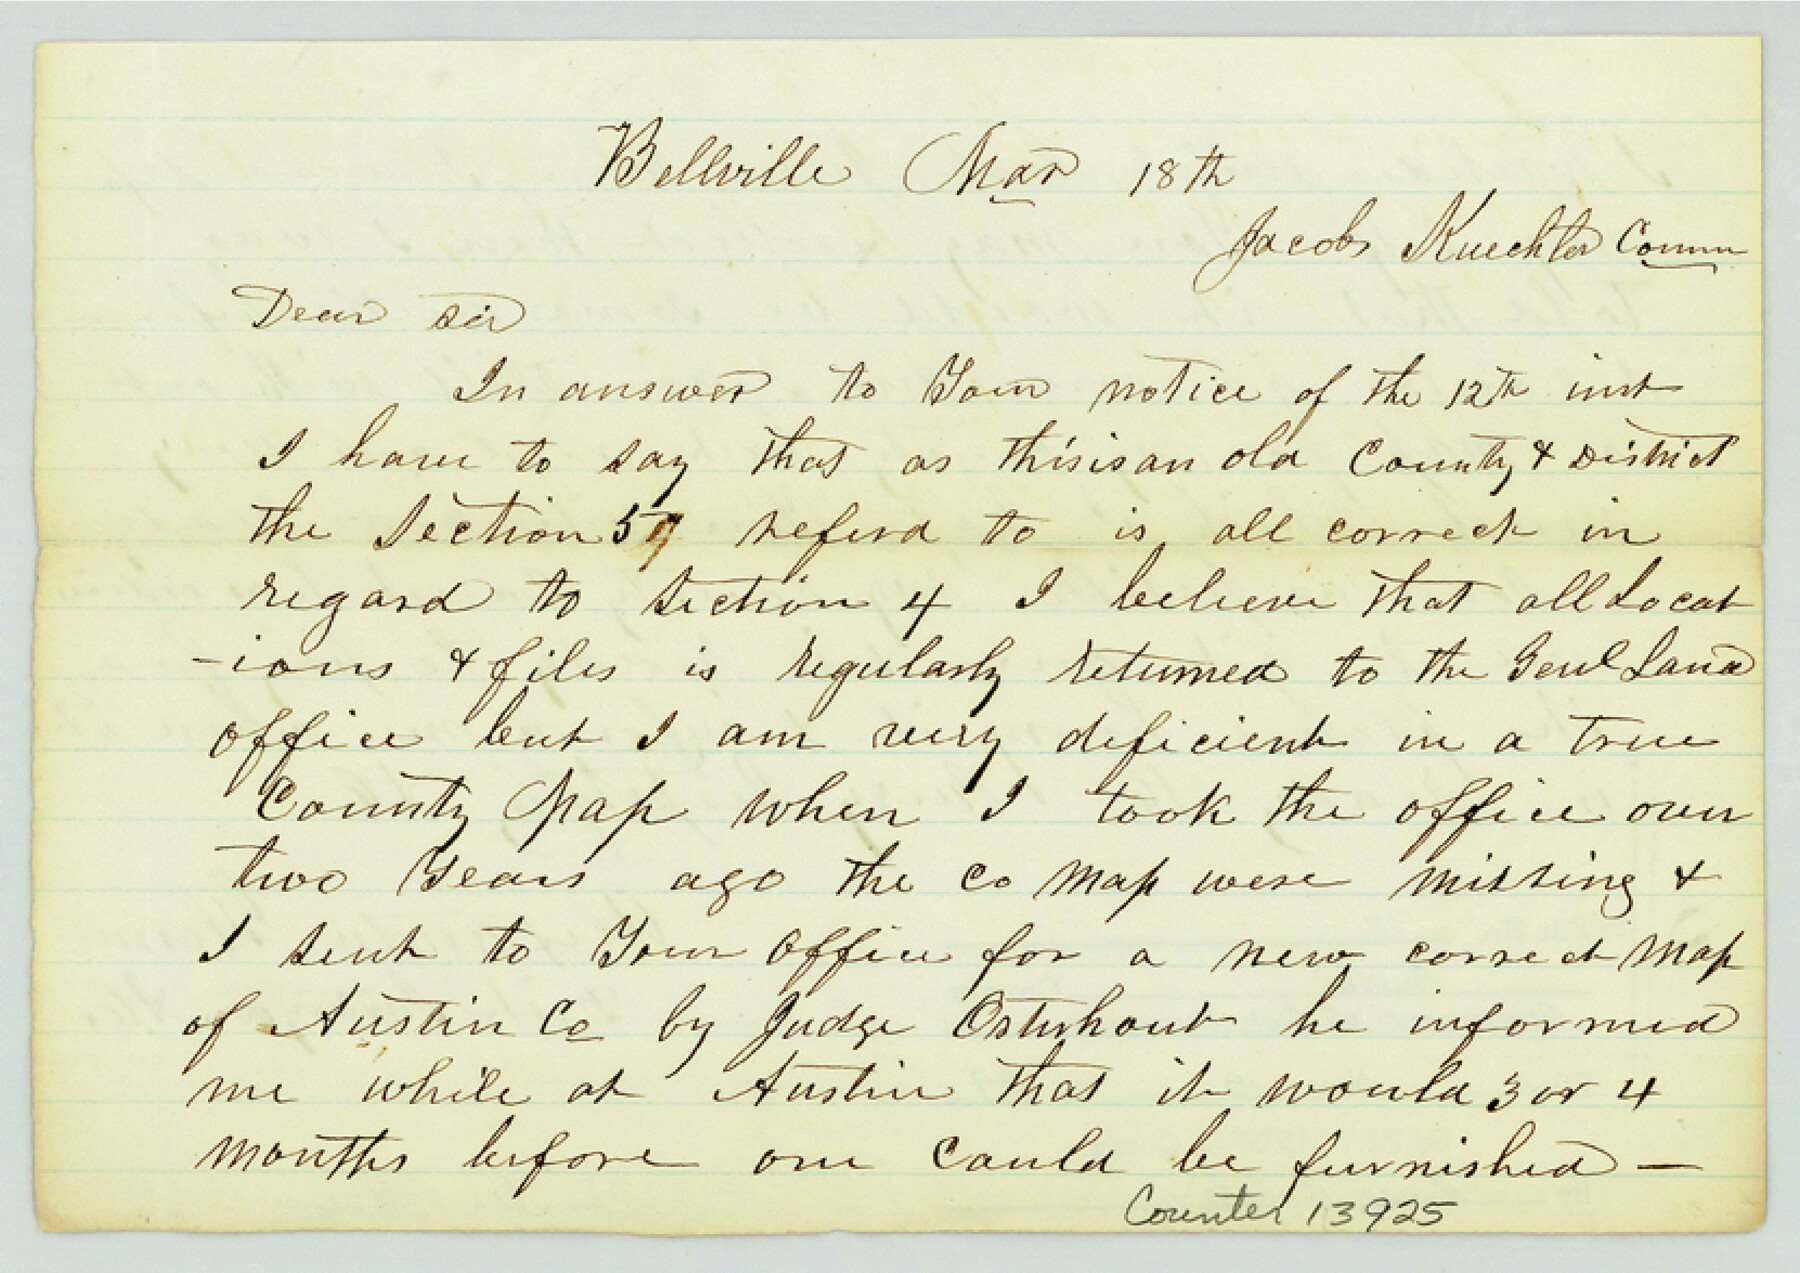 Bellville Mar 18th
Jacob Kuechler Comm
Dear sir
In answer to Your notice of the 12th inst
I have to say that as this is an old County & District
the section 57 referd to is all correct in
regard to section 4 I believe that all Locat
-ions & files is regularly returned to the Genl Land
office but I am very deficient in a true
County Map when I took the office over
two Years ago the Co Map were missing &
I sent to Your office for a new correct Map
of Austin Co by Judge Osterhout he informed
me while at Austin that it would 3 or 4
months before one could be furnished —
Counter 13925